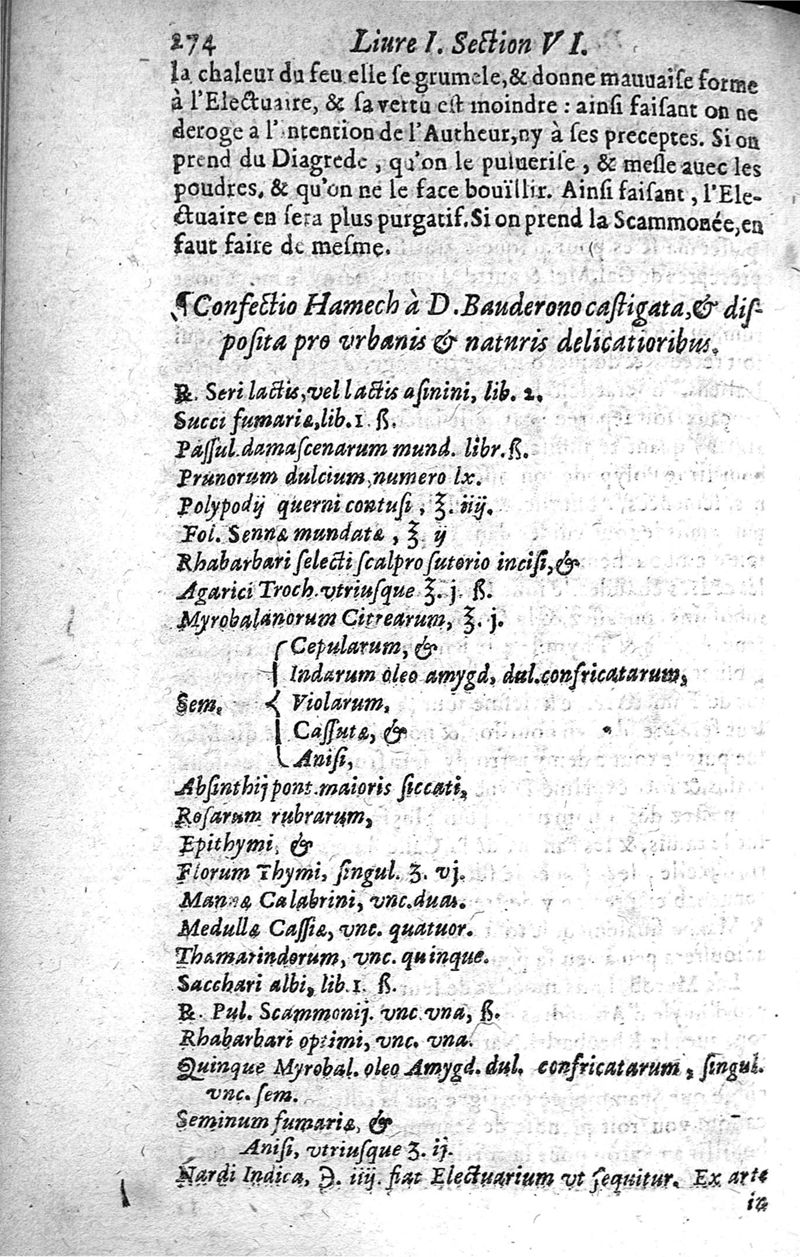 274 Liure I. Section VI.
la chaleur du feu elle se grumele, & donne mauuaise forme
à l'Electuaire, & sa vertu est moindre : ainsi faisant on ne
deroge a l'intention de l'Autheur, ny à ses preceptes. Si on
prend du Diagrede, qu'on le puluerise, & mesle auec les
poudres, & qu'on ne le face bouïllir. Ainsi faisant, l'Ele-
ctuaire en sera plus purgatif. Si on prend la Scammonée, en
faut faire de mesme.
¶Confectio Hamech à D. Bauderono castigata, & dis-
posita pro vrbanis & naturis delicatioribus.
℞. Seri lactis, vel lactis asinini, lib. 2.
Succi fumariæ, lib. 1. ß.
Passul. damascenarum mund. libr. ß.
Prunorum dulcium, numero lx.
Polypodij querni contusi, ℥. iiij.
Fol. Sennæ mundatæ, ℥. ij
Rhabarbari selecti scalpro sutorio incisi, &
Agarici Troch. vtriusque ℥. j. ß.
Myrobalanorum Citrearum, ℥. j.
Cepularum, &
Indarum oleo amygd. dul. confricatarum,
Sem. { Violarum,
Cassutæ, &
Anisi,
Absinthij pont. maioris siccati,
Rosarum rubrarum,
Epithymi, &
Florum Thymi, singul. ʒ. vj.
Mannæ Calabrini, vnc. duas.
Medullæ Cassiæ, vnc. quatuor.
Thamarindorum, vnc. quinque.
Sacchari albi, lib. 1. ß.
℞. Pul. Scammonij. vnc. vna, ß.
Rhabarbari optimi, vnc. vna.
Quinque Myrobal. oleo Amygd. dul. confricatarum, singul.
vnc. sem.
Seminum fumariæ, &
Anisi, vtriusque ʒ. ij.
Nardi Indica, ℈. iiij. fiat Electuarium vt sequitur. Ex arte
in